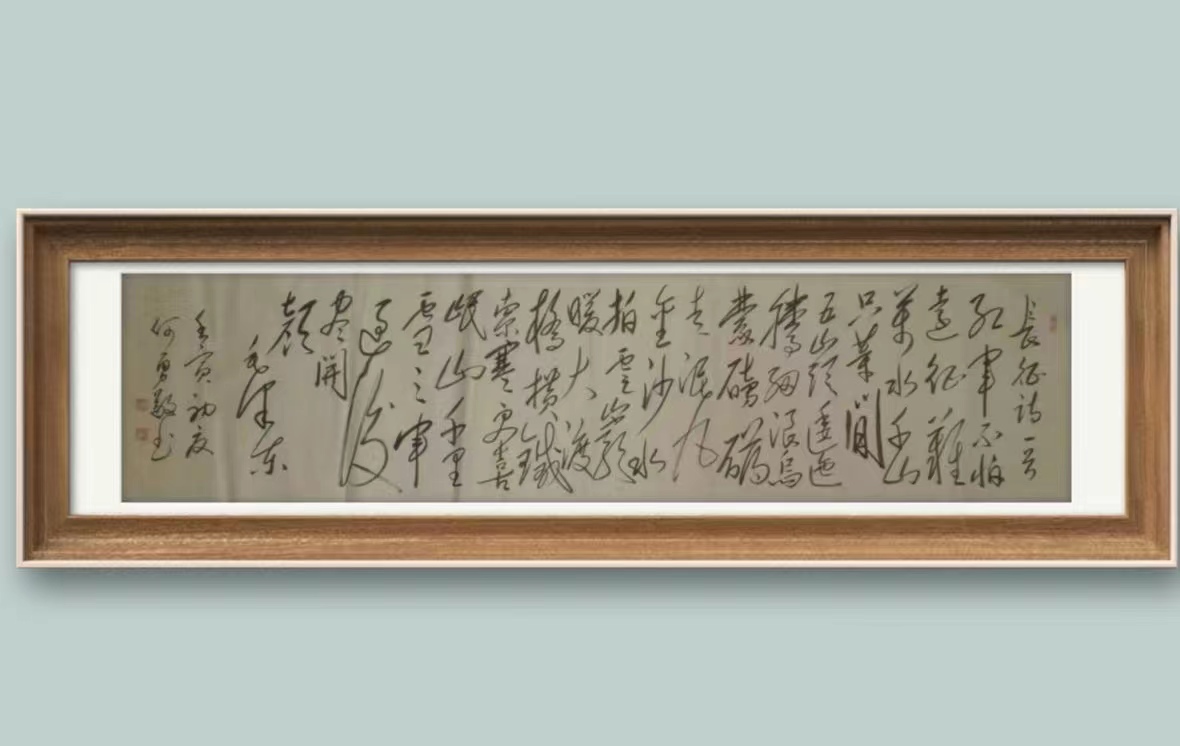 長征詩一首
紅軍不怕
遠征難
萬水千山
只等閒
五嶺逶迤
騰細浪烏
蒙磅礴
走泥丸
金沙水
拍雲崖
暖大渡
橋橫鐵
索寒更喜
岷山千里
雪三軍
過後
盡開
顏
毛澤東
壬寅初夏
何勇敬书